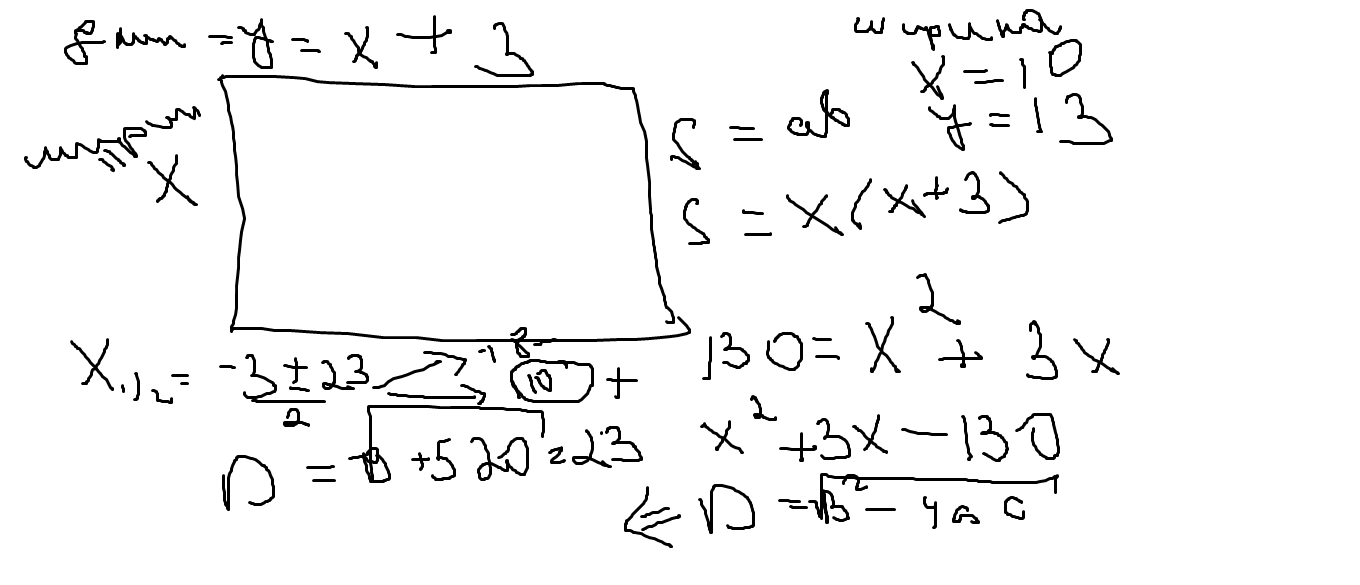 длин = y = x + 3
ширина
x = 10
y = 13
ширин = x
S = ab
S = x(x+3)
130 = x² + 3x
x² + 3x - 130
D = √b² - 4ac
x₁,₂ = (-3 ± 23)/2
10 +
+520 = 23